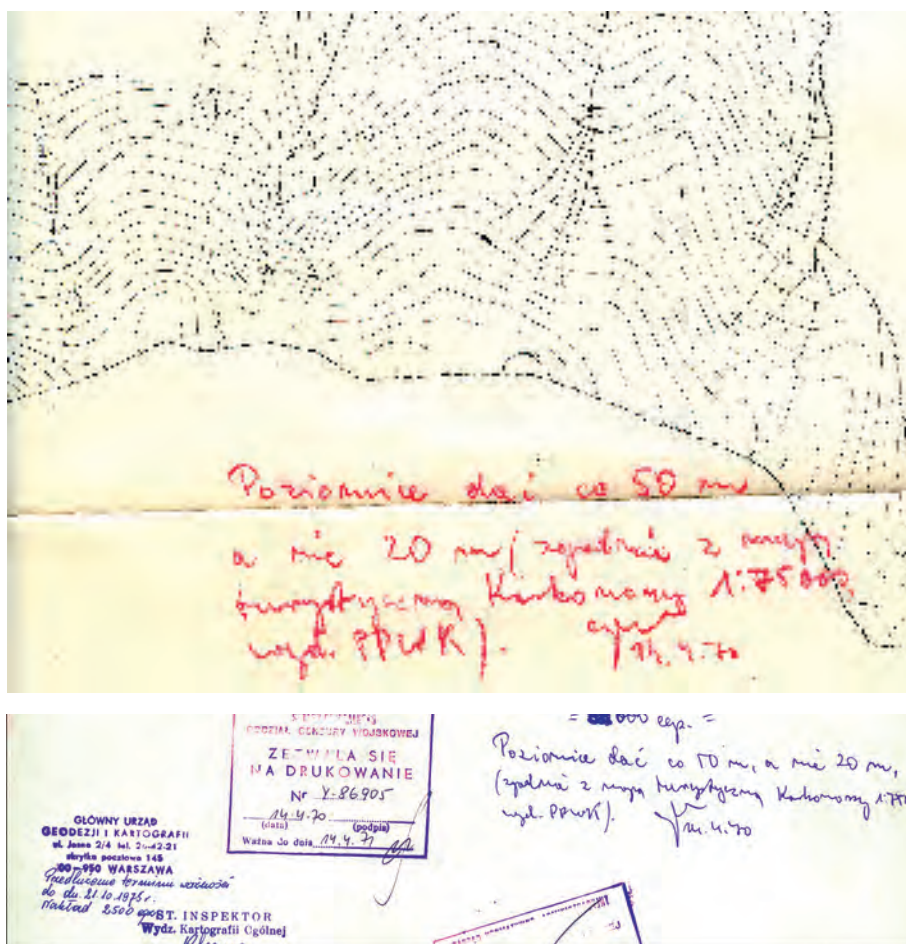 Poziomnice dać co 50 m
a nie 20 m (zgodnie z mapą
turystyczną Karkonoszy 1:75 000,
wyd. PPWK).
14.4.70
ODDZIAŁ CENZURY WOJSKOWEJ
ZEZWALA SIĘ
NA DRUKOWANIE
Nr Y-86905
14.4.70
(data) (podpis)
Ważna do dnia 14.4.71
000 egz. =
Poziomnice dać co 50 m, a nie 20 m,
(zgodnie z mapą turystyczną Karkonoszy
wyd. PPWK).
14.4.70
GŁÓWNY URZĄD
GEODEZJI I KARTOGRAFII
ul. Jasna 2/4 tel. 26-42-21
skrytka pocztowa 145
00-950 WARSZAWA
Przedłużono terminu ważności
do dn. 21.10.1975 r.
Nakład 2500 egz
ST. INSPEKTOR
Wydz. Kartografii Ogólnej